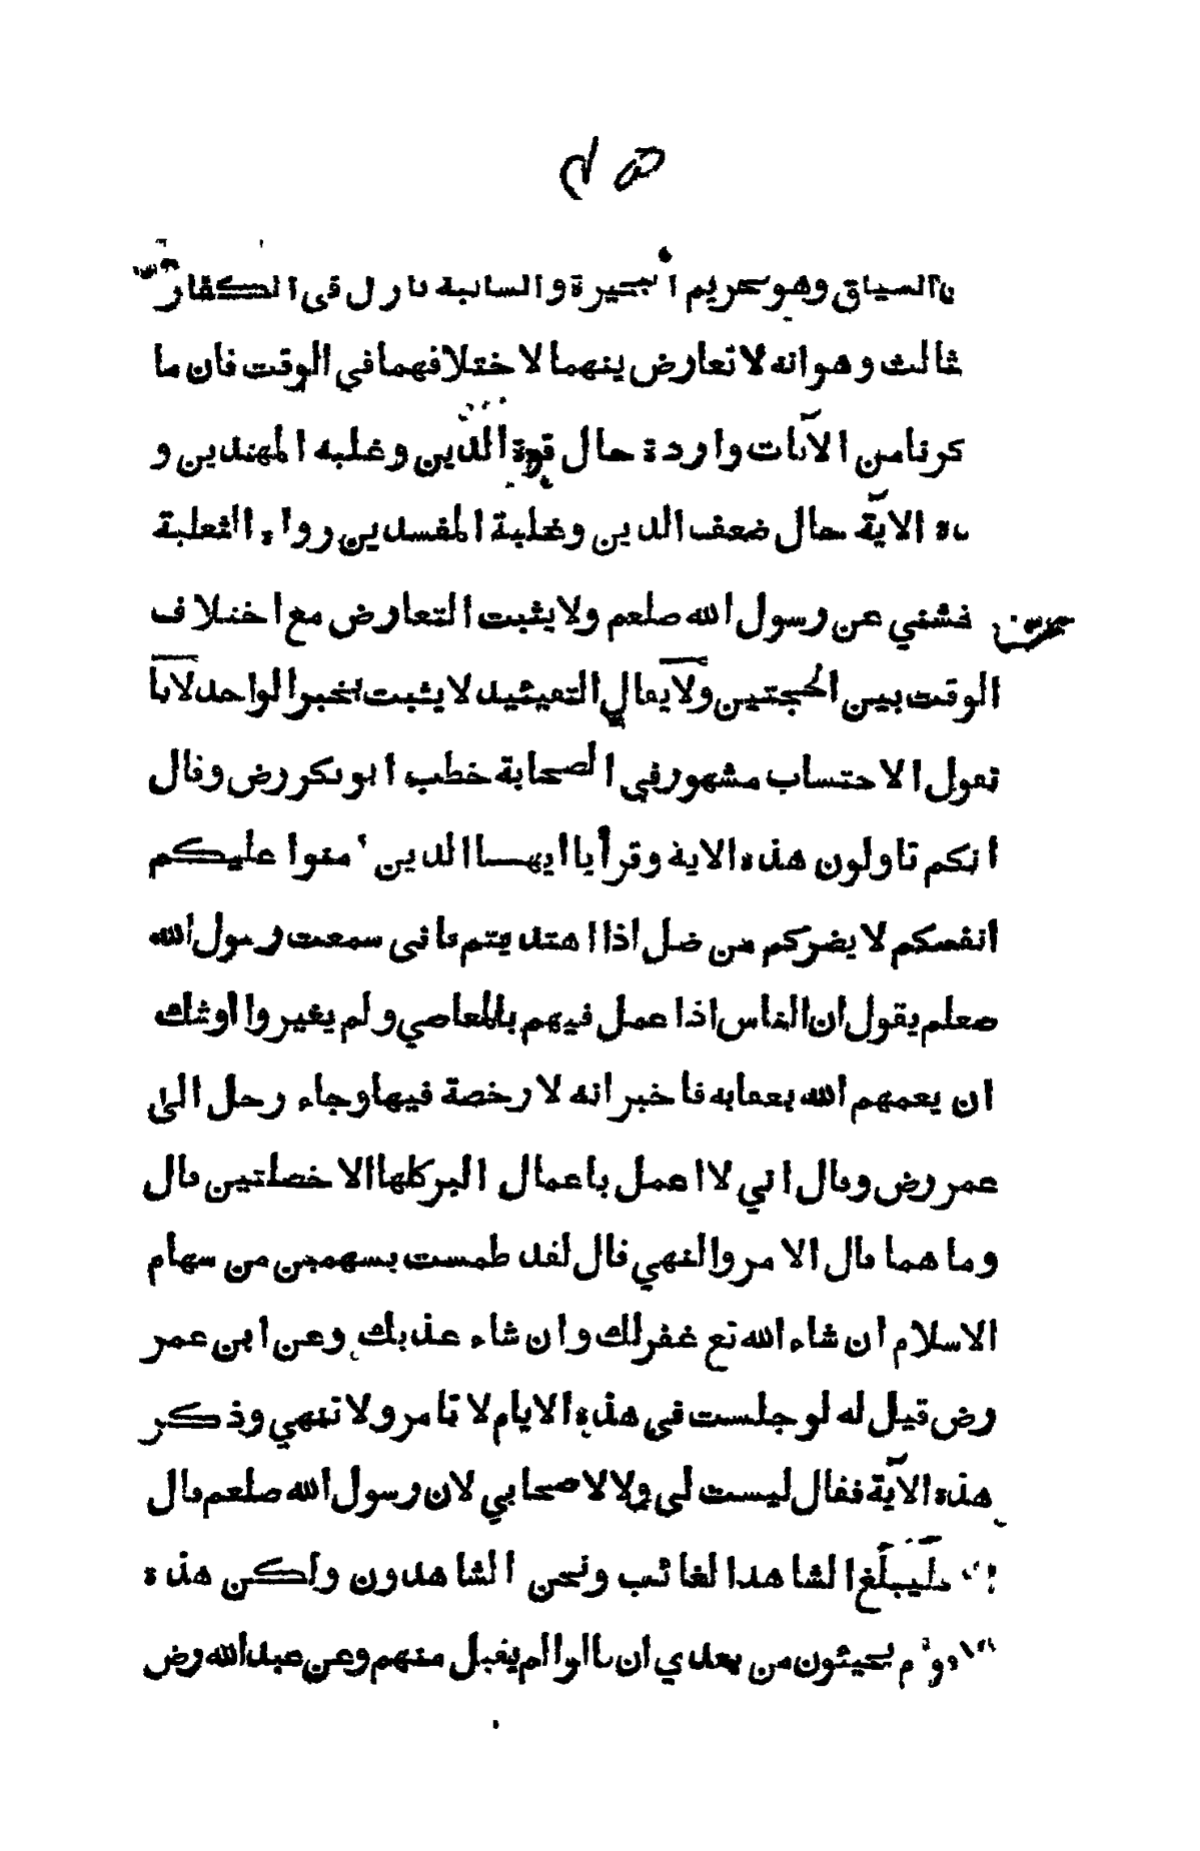 السياق وهو تحريم البحيرة والسائبة نازل فى الكفار
ثالث وهو انه لا تعارض بينهما لاختلافهما في الوقت فان ما
كرنا من الآيات واردة حال قوة الدين وغلبه المهتدين و
الآية حال ضعف الدين وغلبة المفسدين رواه الثعلبة
خشني عن رسول الله صلعم ولا يثبت التعارض مع اختلاف
الوقت بين الحجتين ولا يقال التقييد لا يثبت بخبر الواحد لانا
نقول الاحتساب مشهور في الصحابة خطب ابو بكر رض وقال
انكم تاولون هذه الاية وقرأ يا ايها الدين ءمنوا عليكم
انفسكم لا يضركم من ضل اذا اهتديتم فانى سمعت رسول الله
صعلم يقول ان الناس اذا عمل فيهم بالمعاصي ولم يغيروا اوشك
ان يعمهم الله بعقابه فاخبر انه لا رخصة فيها وجاء رجل الى
عمر رض وقال اني لا اعمل باعمال البر كلها الا خصلتين قال
وما هما قال الامر والنهي قال لقد طمست بسهمين من سهام
الاسلام ان شاء الله تع غفر لك وان شاء عذبك وعن ابن عمر
رض قيل له لو جلست فى هذه الايام لا تامر ولا تنهي وذكر
هذه الآية فقال ليست لى ولا لاصحابي لان رسول الله صلعم قال
فليبلغ الشاهد الغائب ونحن الشاهدون ولكن هذه
يجيئون من بعدي ان قالوا لم يقبل منهم وعن عبد الله رض